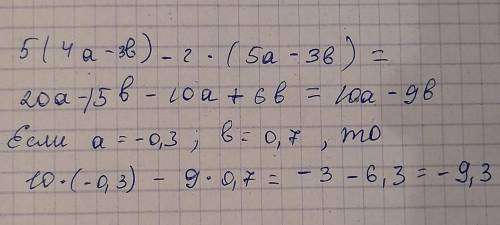 5(4а-3в)-2·(5а-3в)=
20а-15в-10а+6в=10а-9в
Если а=-0,3; в=0,7, то
10·(-0,3)-9·0,7=-3-6,3=-9,3